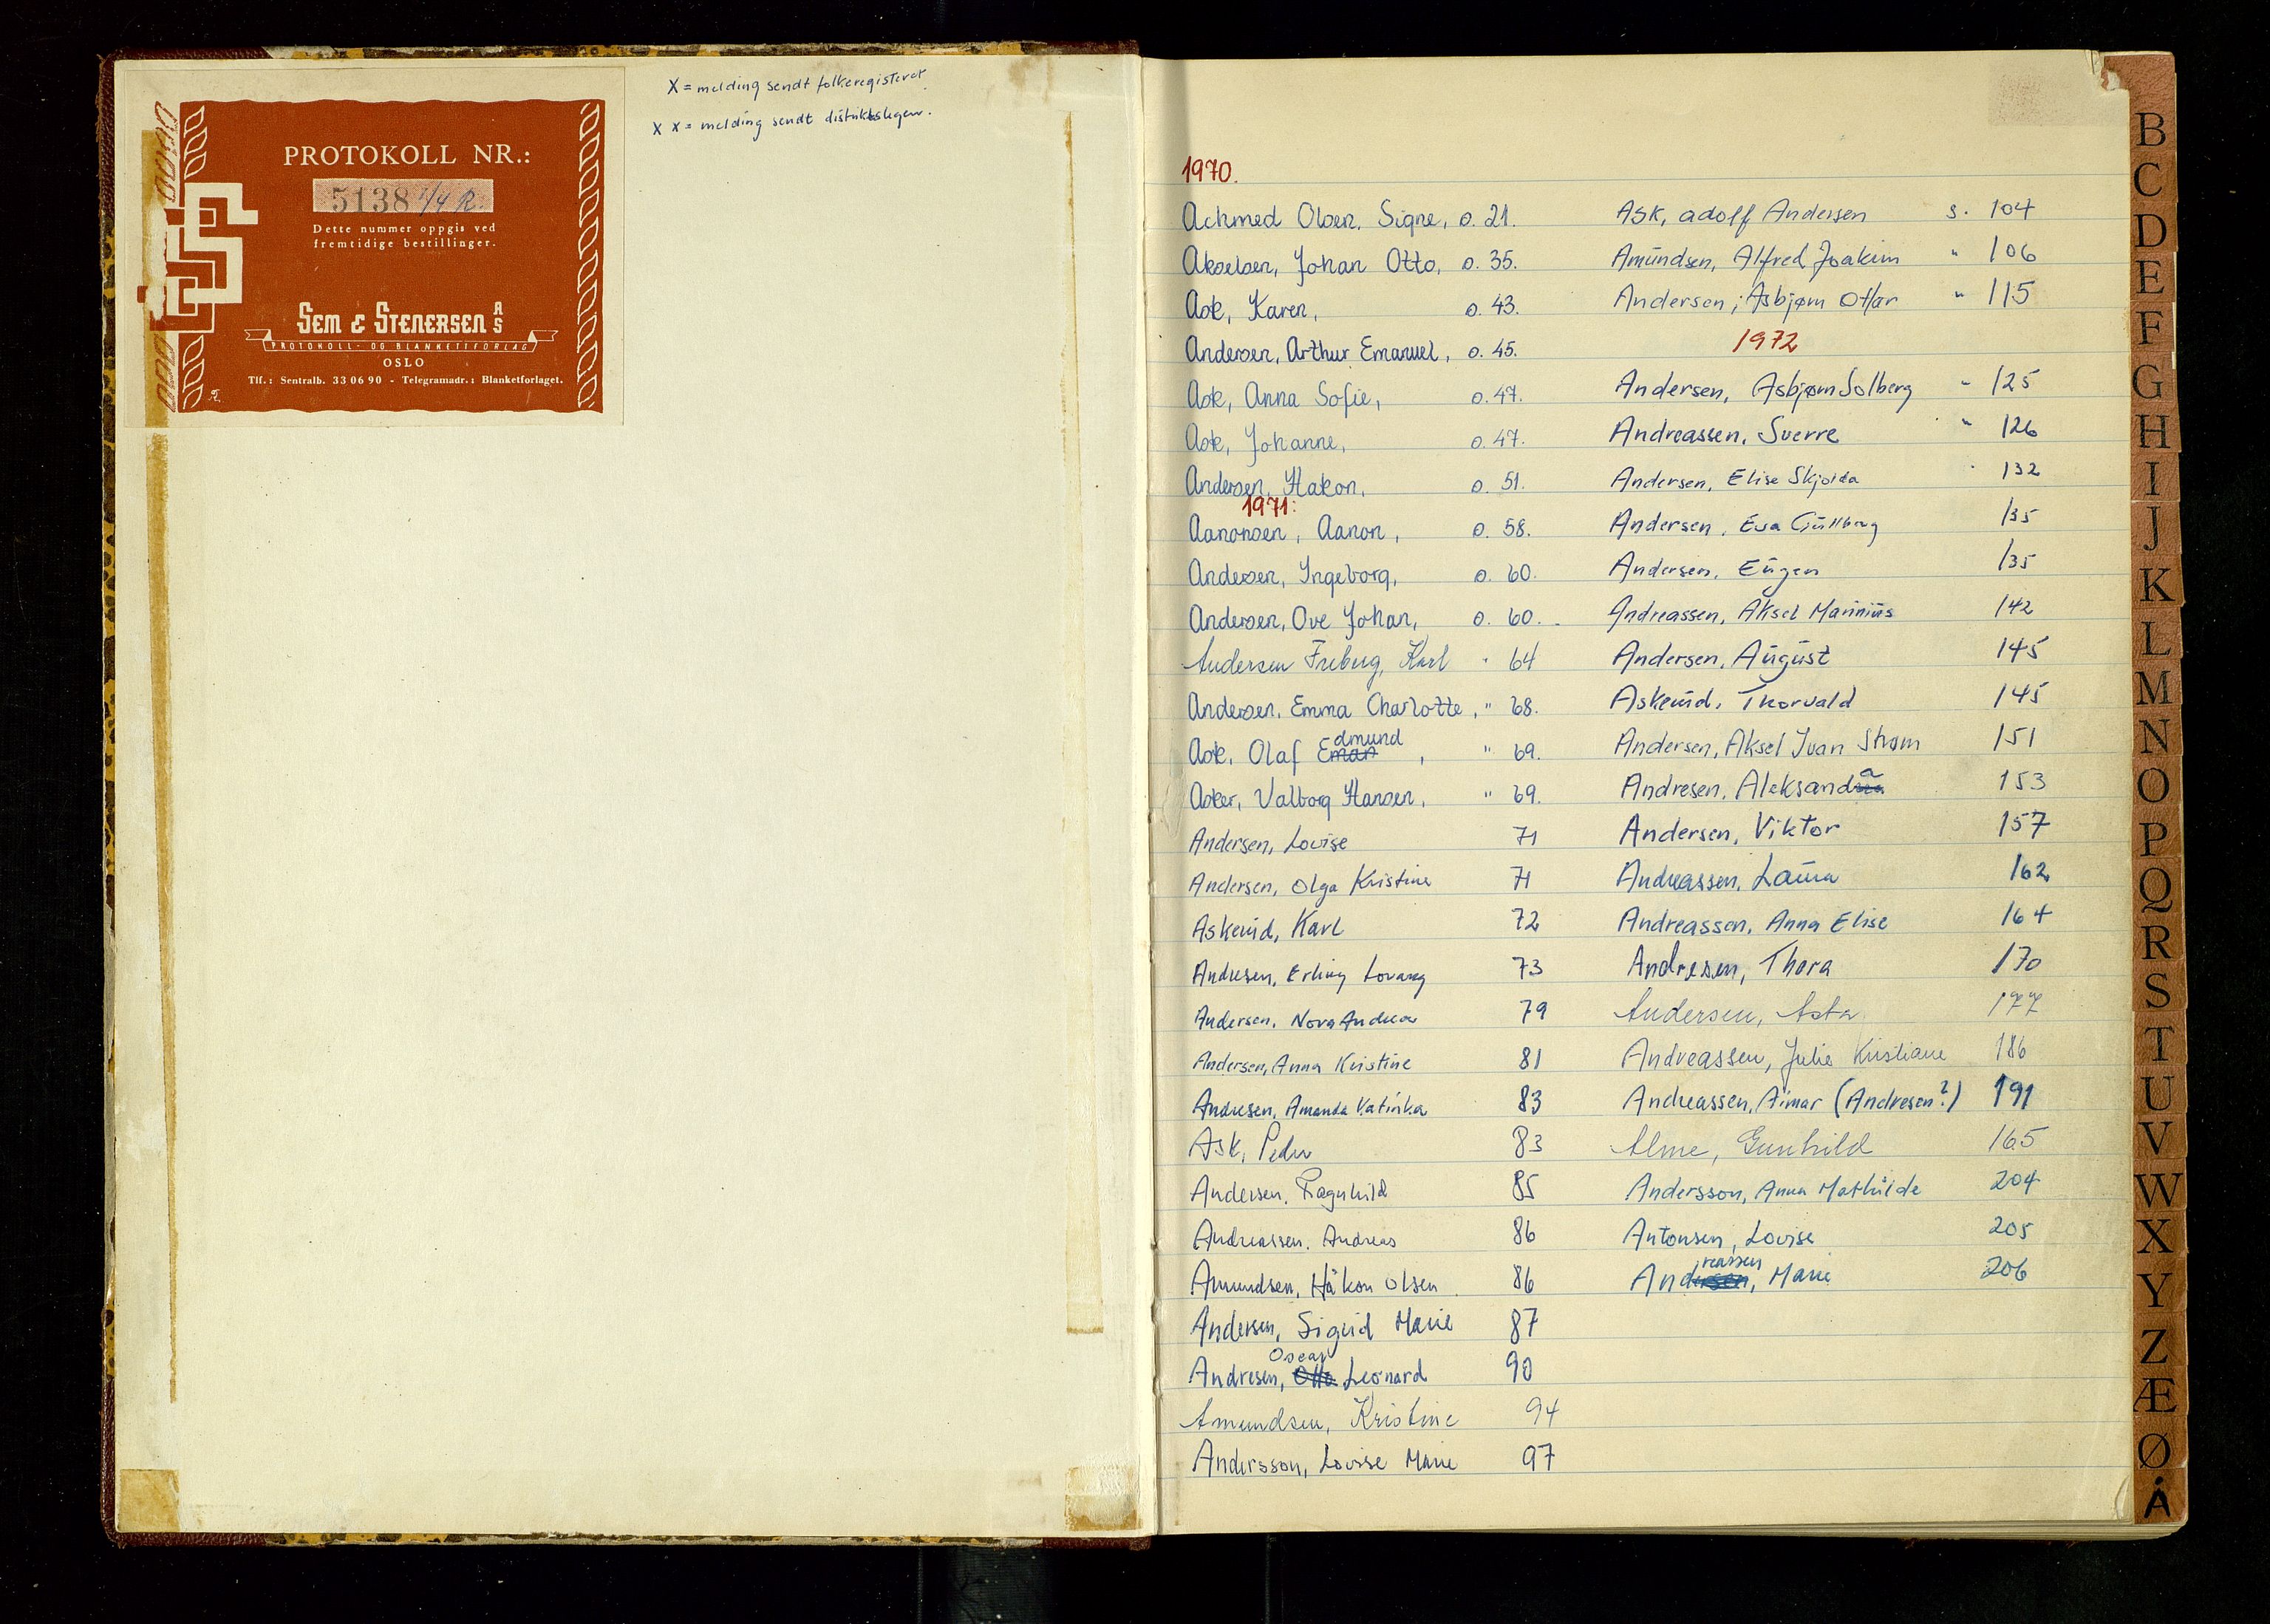 PROTOKOLL NR.:
5138 1/4 R.
Dette nummer oppgis ved
fremtidige bestillinger.
SEM & STENERSEN A/S
PROTOKOLL- OG BLANKETTFORLAG
OSLO
Tlf.: Sentralb. 33 06 90 - Telegramadr.: Blanketforlaget.
X = melding sendt folkeregisteret.
X X = melding sendt distriktslegen.
1970.
Achmed Olsen, Signe, s. 21.
Akselsen, Johan Otto, s. 35.
Ask, Karen, s. 43.
Andersen, Arthur Emanuel, s. 45.
Ask, Anna Sofie, s. 47.
Ask, Johanne, s. 47.
Andersen, Hakon, s. 51.
1971:
Aanonsen, Aanon, s. 58.
Andersen, Ingeborg, s. 60.
Andersen, Ove Johan, s. 60.
Andersen Freberg, Karl " 64
Andersen, Emma Charlotte, " 68.
Ask, Olaf Edmund, " 69.
Asker, Valborg Hansen, " 69.
Andersen, Lovise 71
Andersen, Olga Kristine 71
Askerud, Karl 72
Andresen, Erling Lovang 73
Andersen, Nora Andrea 79
Andersen, Anna Kristine 81
Andresen, Amanda Katinka 83
Ask, Peder 83
Andersen, Ragnhild 85
Andreassen, Andreas 86
Amundsen, Håkon Olsen 86
Andersen, Sigrid Marie 87
Andresen, Otto Oscar Leonard 90
Amundsen, Kristine 94
Andersson, Lovise Marie 97
Ask, Adolf Andersen s. 104
Amundsen, Alfred Joakim " 106
Andersen, Asbjørn Ottar " 115
1972
Andersen, Asbjørn Solberg " 125
Andreassen, Sverre " 126
Andersen, Elise Skjolda " 132
Andersen, Eva Gullberg 135
Andersen, Eugen 135
Andreassen, Aksel Marinius 142
Andersen, August 145
Askerud, Thorvald 145
Andersen, Aksel Ivan Strøm 151
Andresen, Aleksanda 153
Andersen, Viktor 157
Andreassen, Laura 162
Andreassen, Anna Elise 164
Andresen, Thora 170
Andersen, Asta 177
Andreassen, Julie Kristiane 186
Andreassen, Aimar (Andresen?) 191
Alme, Gunhild 165
Andersson, Anna Mathilde 204
Antonsen, Lovise 205
Andreassen, Marie 206
B
C
D
E
F
G
H
I
J
K
L
M
N
O
P
Q
R
S
T
U
V
W
X
Y
Z
Æ
Ø
Å